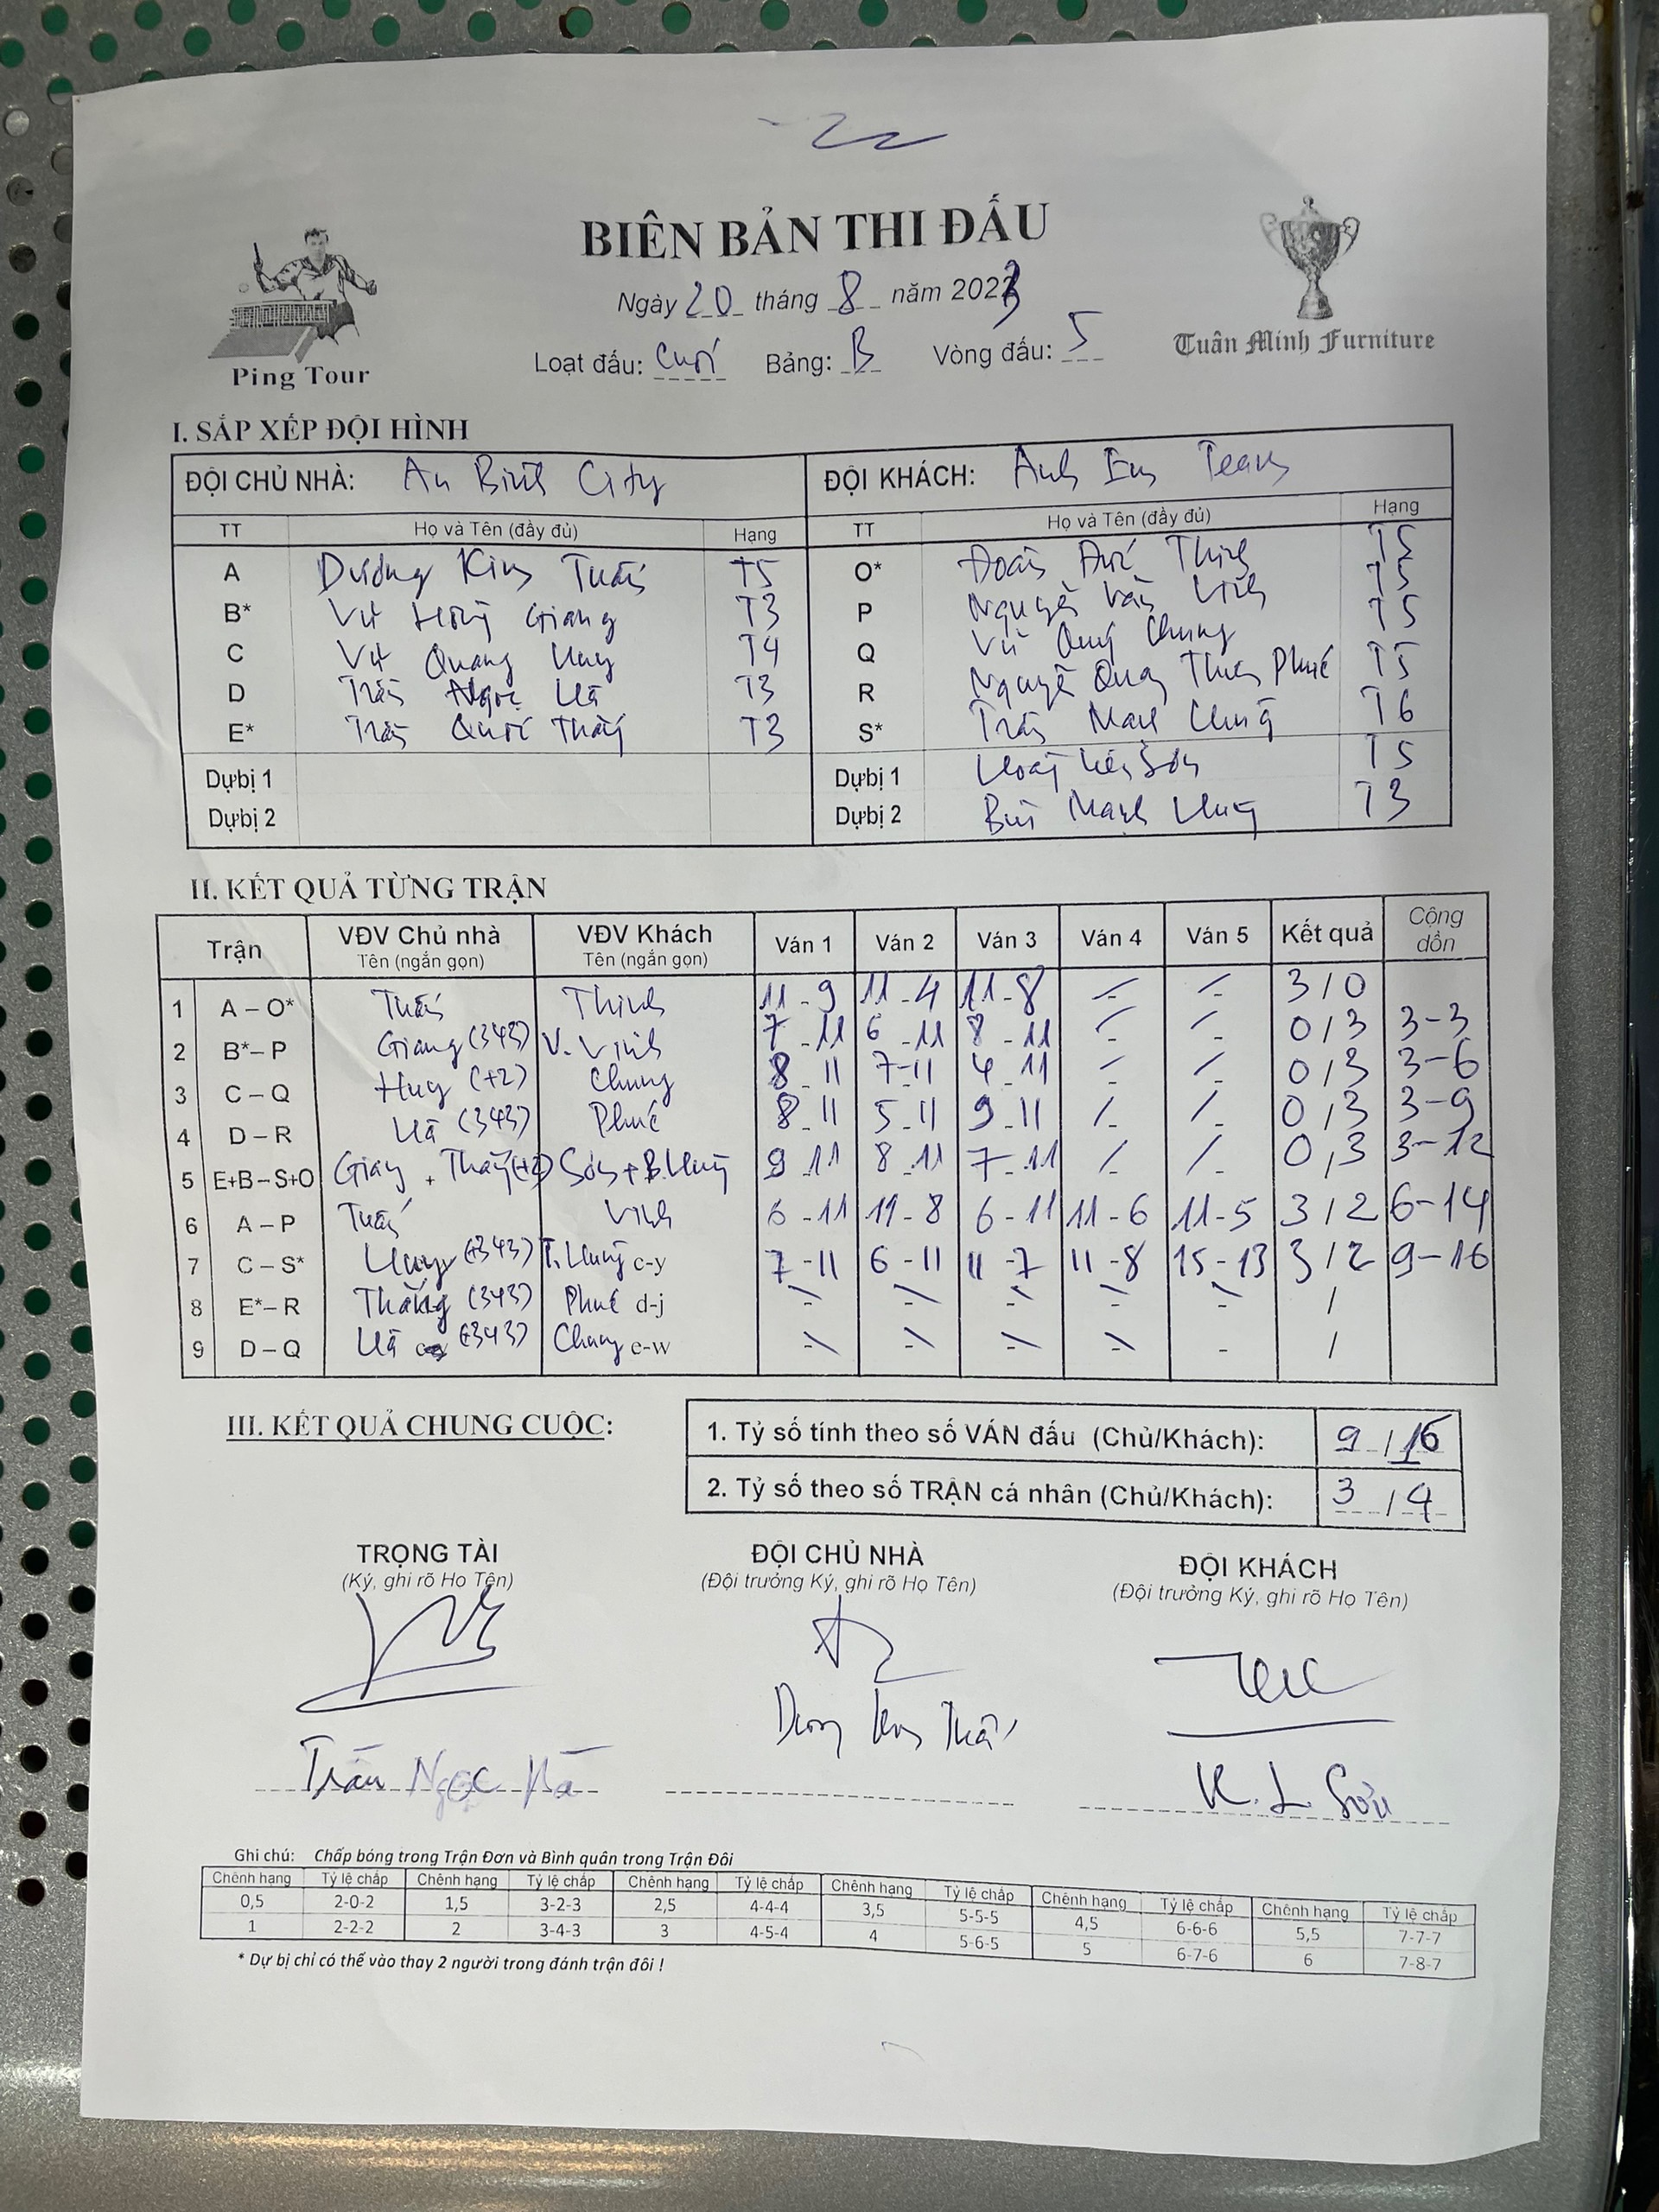 BIÊN BẢN THI ĐẤU
Ngày 20 tháng 8 năm 2023
Loạt đấu: Cuối Bảng: B Vòng đấu: 5
Ping Tour
Tuấn Minh Furniture
I. SẮP XẾP ĐỘI HÌNH
ĐỘI CHỦ NHÀ: An Bình City ĐỘI KHÁCH: Anh Em Team
TT Họ và Tên (đầy đủ) Hạng TT Họ và Tên (đầy đủ) Hạng
A Dương Kim Tuấn T5 O* Đoàn Đức Thịnh T5
B* Vũ Hồng Giang T3 P Nguyễn Văn Vinh T5
C Vũ Quang Huy T4 Q Vũ Quý Chung T5
D Trần Ngọc Hà T3 R Nguyễn Quang Phúc T5
E* Trần Quốc Thắng T3 S* Trần Mạnh Hùng T6
Dự bị 1 Sơn T5
Dự bị 2 Bùi Mạnh Hùng T3
II. KẾT QUẢ TỪNG TRẬN
Trận VĐV Chủ nhà Tên (ngắn gọn) VĐV Khách Tên (ngắn gọn) Ván 1 Ván 2 Ván 3 Ván 4 Ván 5 Kết quả Cộng dồn
1 A – O* Tuấn Thịnh 11 - 9 11 - 4 11 - 8 - - 3 / 0
2 B* – P Giang (343) V. Vinh 7 - 11 6 - 11 8 - 11 - - 0 / 3 3-3
3 C – Q Huy (+2) Chung 8 - 11 7-11 4 - 11 - - 0 / 3 3-6
4 D – R Hà (343) Phúc 8 - 11 5 - 11 9 - 11 - - 0 / 3 3-9
5 E+B – S+O Giang + Thắng (+2) Sơn + B.Hùng 9 - 11 8 - 11 7 - 11 - - 0 / 3 3-12
6 A – P Tuấn Vinh 6 - 11 11 - 8 6 - 11 11 - 6 11 - 5 3 / 2 6-14
7 C – S* Huy (+343) T. Hùng c-y 7 - 11 6 - 11 11 - 7 11 - 8 15 - 13 3 / 2 9-16
8 E* – R Thắng (343) Phúc d-j - - - - - /
9 D – Q Hà (+343) Chung e-w - - - - - /
III. KẾT QUẢ CHUNG CUỘC:
1. Tỷ số tính theo số VÁN đấu (Chủ/Khách): 9 / 16
2. Tỷ số theo số TRẬN cá nhân (Chủ/Khách): 3 / 4
TRỌNG TÀI ĐỘI CHỦ NHÀ ĐỘI KHÁCH
(Ký, ghi rõ Họ Tên) (Đội trưởng Ký, ghi rõ Họ Tên) (Đội trưởng Ký, ghi rõ Họ Tên)
Trần Ngọc Hà
Ghi chú: Chấp bóng trong Trận Đơn và Bình quân trong Trận Đôi
Chênh hạng Tỷ lệ chấp Chênh hạng Tỷ lệ chấp Chênh hạng Tỷ lệ chấp Chênh hạng Tỷ lệ chấp Chênh hạng Tỷ lệ chấp Chênh hạng Tỷ lệ chấp
0,5 2-0-2 1,5 3-2-3 2,5 4-4-4 3,5 5-5-5 4,5 6-6-6 5,5 7-7-7
1 2-2-2 2 3-4-3 3 4-5-4 4 5-6-5 5 6-7-6 6 7-8-7
* Dự bị chỉ có thể vào thay 2 người trong đánh trận đôi !